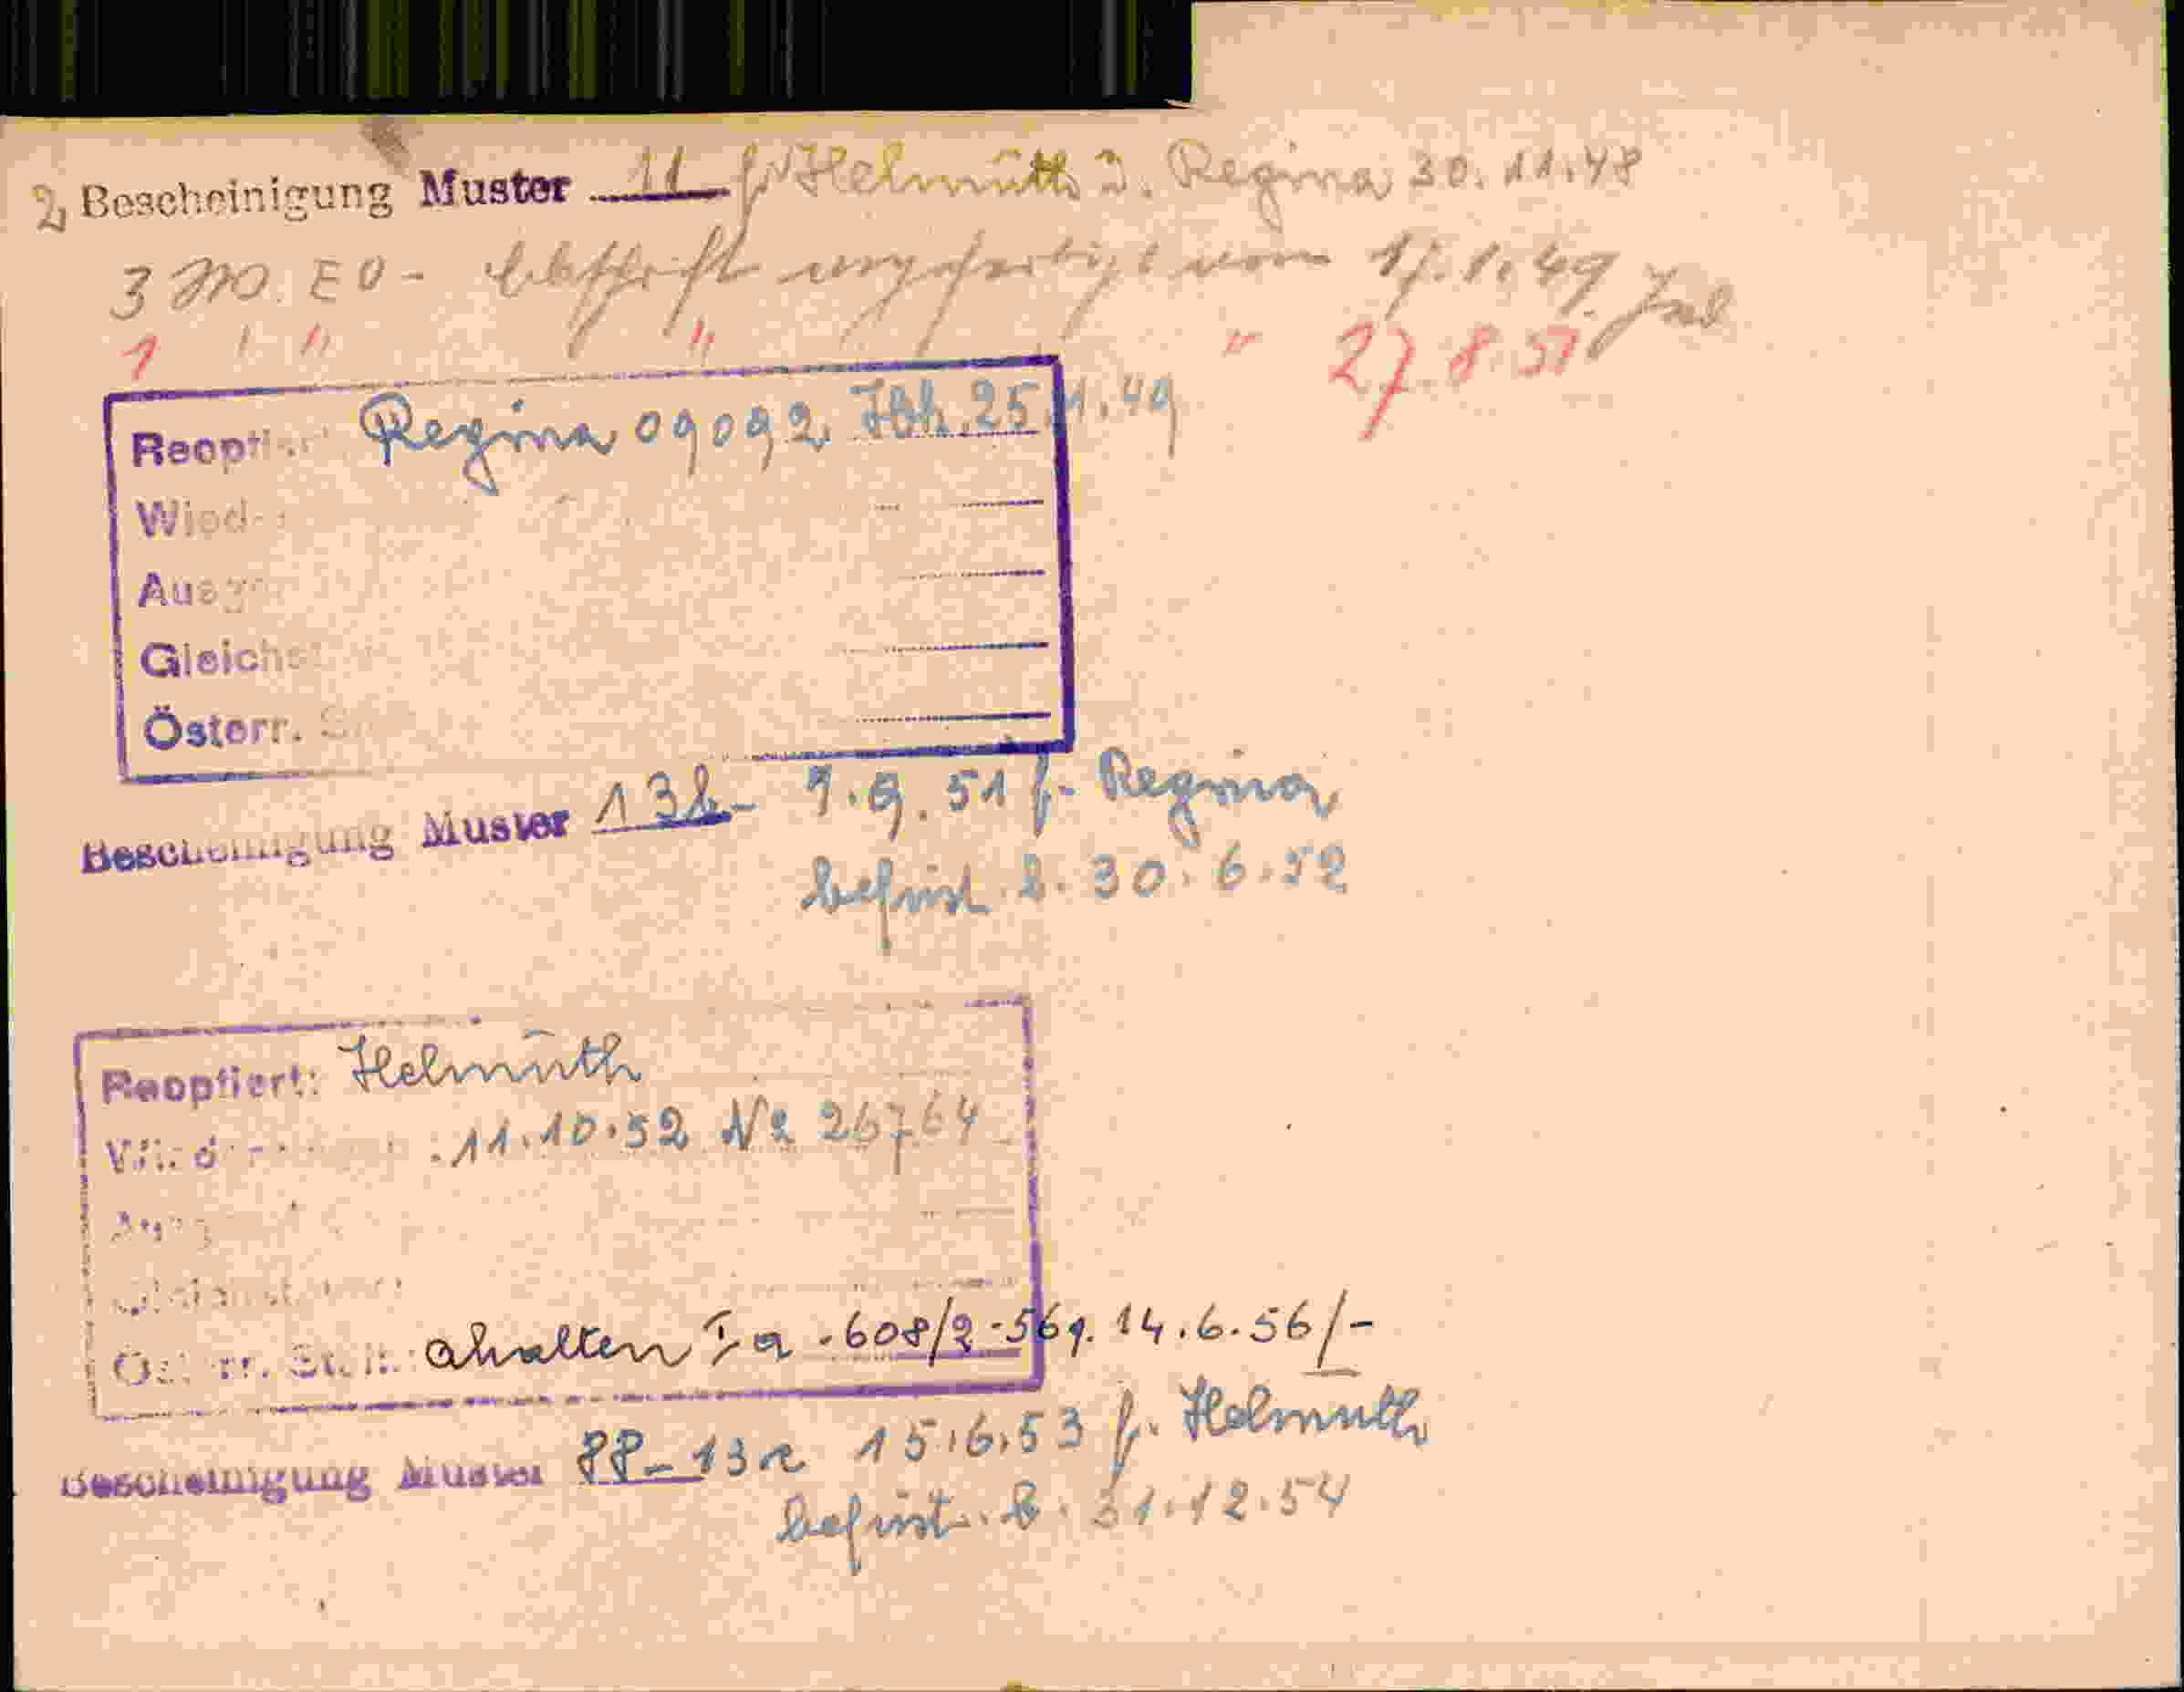 2, Bescheinigung Muster 11 f. Helmuth u. Regina 30.11.48
3 M. EO - Abschrift angefertigt vom 17.1.49
1 " " " " 27.8.51
Reoptiert Regina 09092 25.1.49
Wied
Ausge
Gleichst
Österr. S
Bescheinigung Muster 13b - 7.9.51 f. Regina
befrist. b. 30.6.52
Reoptiert: Helmuth
11.10.52 No 26764
Österr. erhalten Ia - 608/2-56 g. 14.6.56/-
Bescheinigung Muster 88-13a 15.6.53 f. Helmuth
befrist. b. 31.12.54